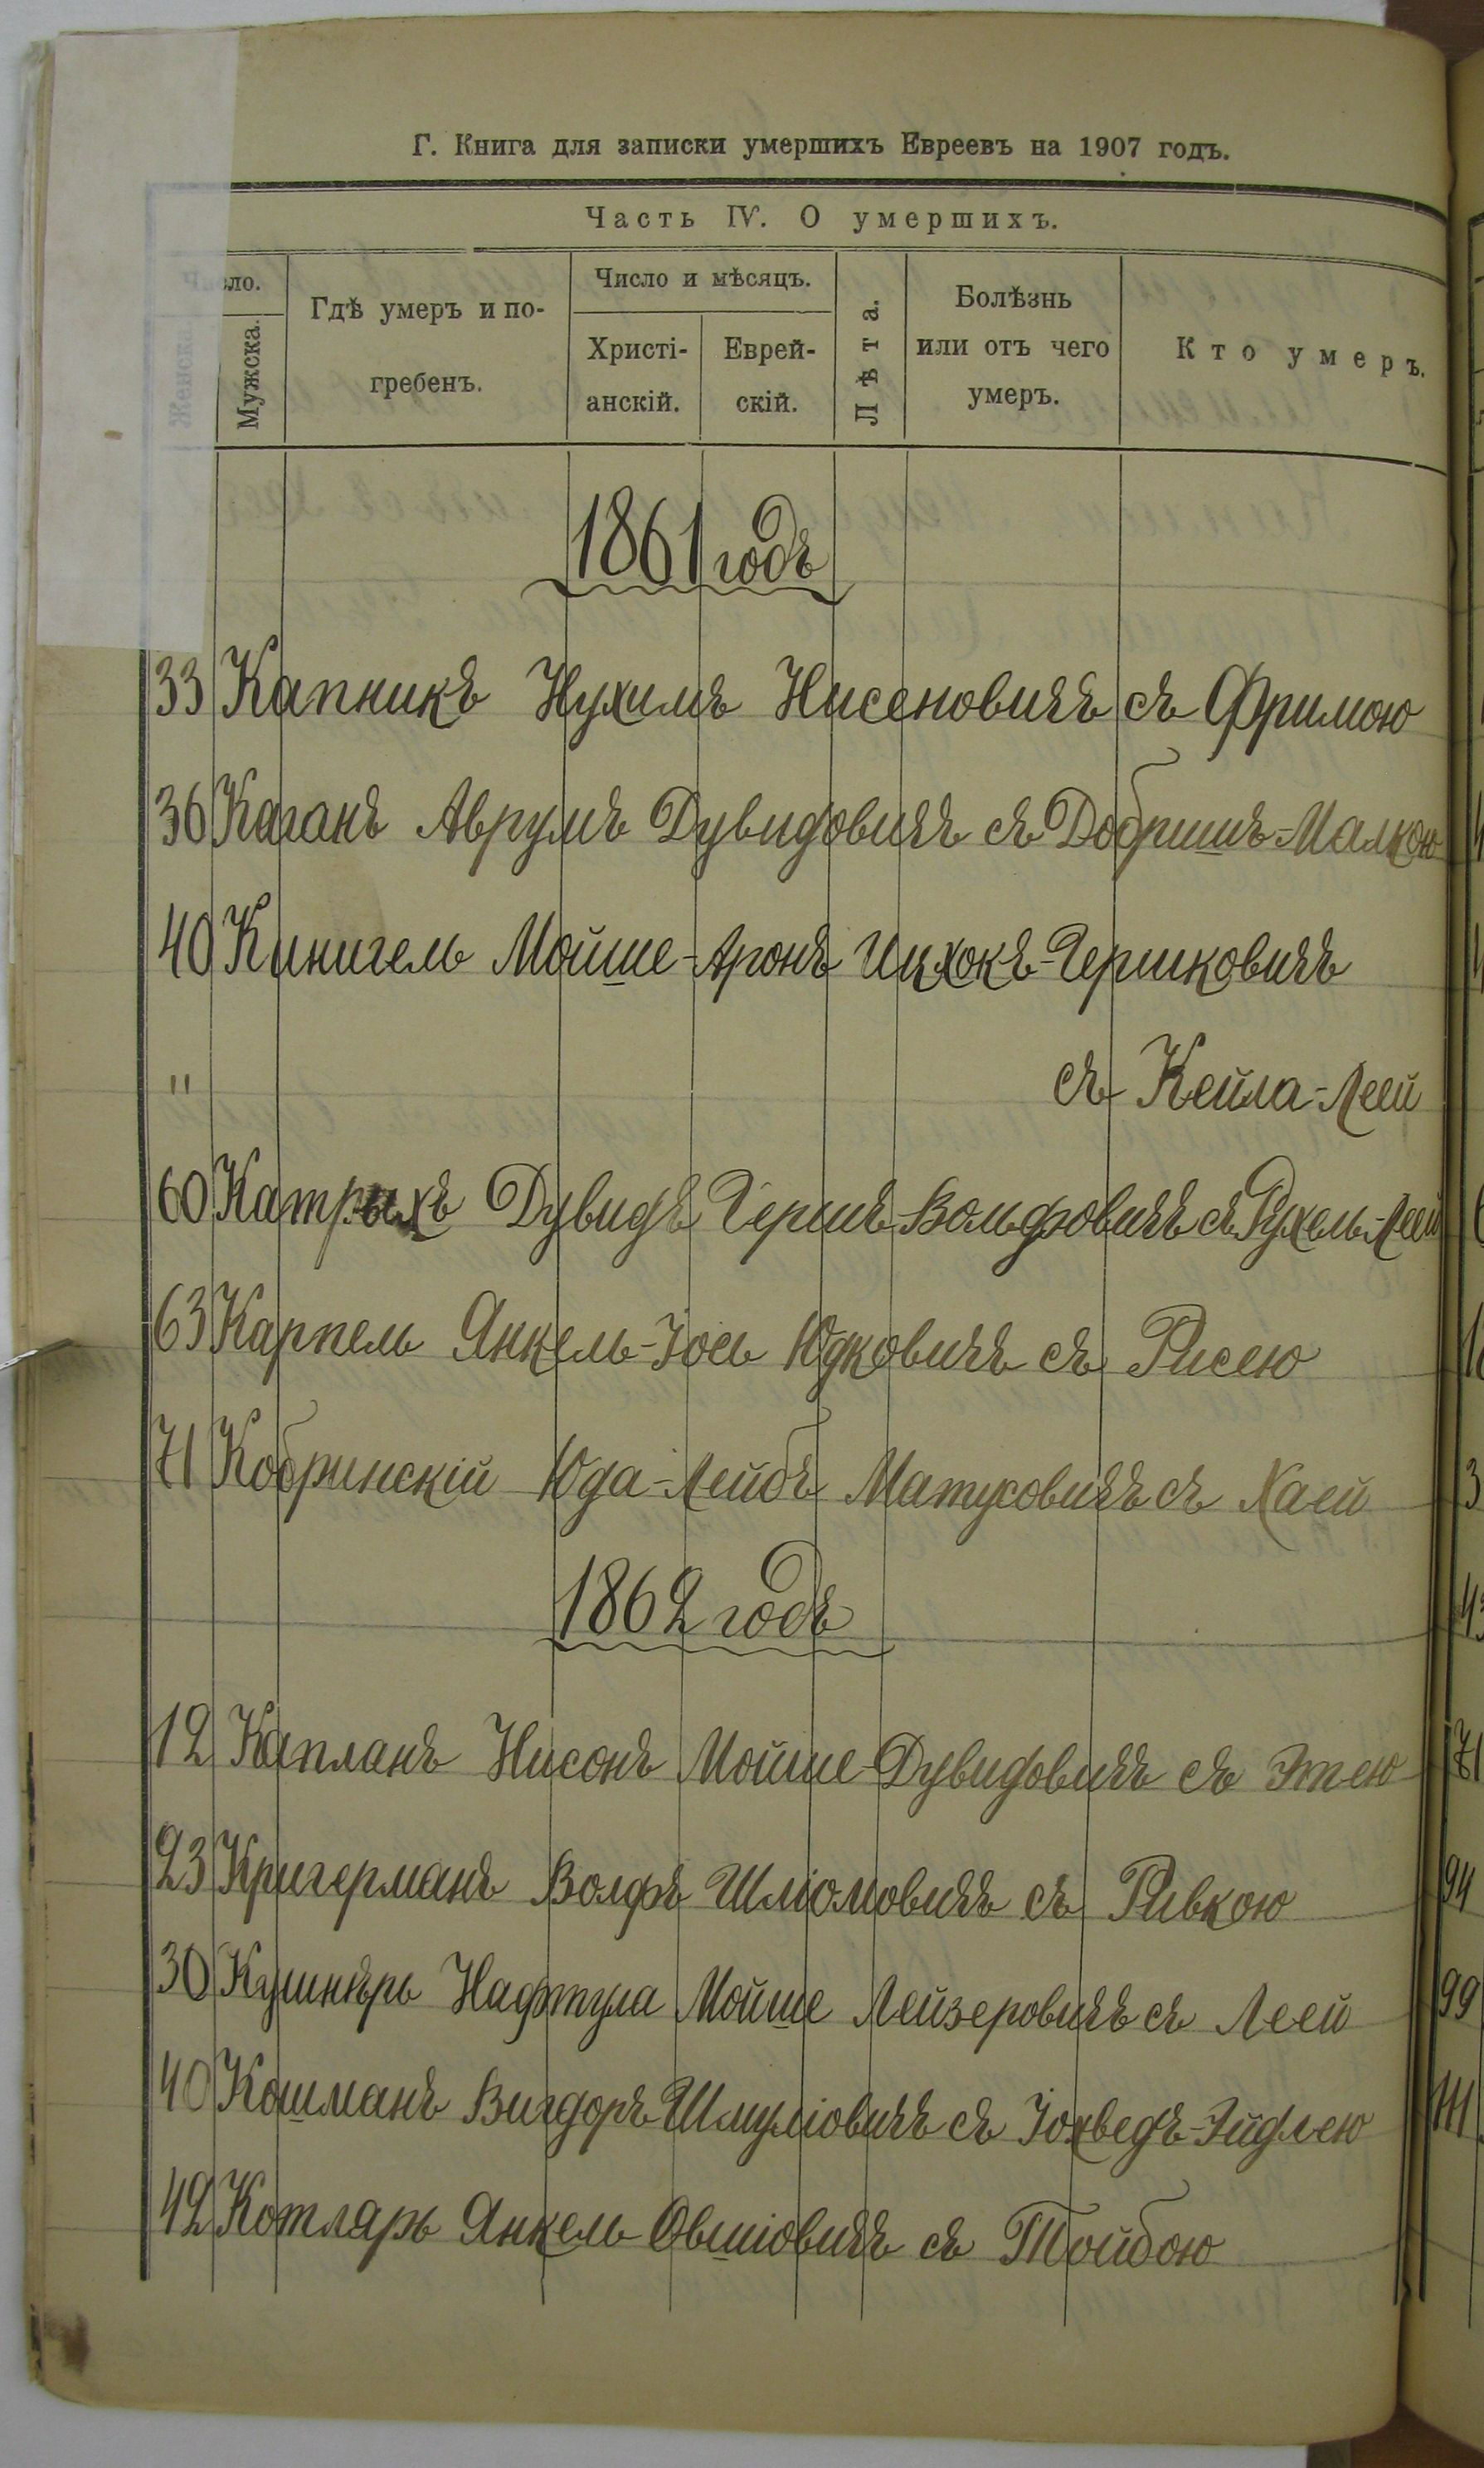 Г. Книга для записки умершихъ Евреевъ на 1907 годъ.
Часть IV. О умершихъ.
Число.
Женска.
Мужска.
Гдѣ умеръ и по-
гребенъ.
Число и мѣсяцъ.
Христі-
анскій.
Еврей-
скій.
Лѣта.
Болѣзнь
или отъ чего
умеръ.
Кто умеръ.
1861 годъ
33 Капникъ Нухимъ Нисеновичъ съ Фримою
36 Каганъ Аврумъ Дувидовичъ съ Добришъ-Малкою
40 Кинигель Мойше-Аронъ Ицхокъ-Гершковичъ
" съ Кейла-Леей
60 Катрыхъ Дувидъ Гершъ-Вольфовичъ съ Рухель-Леей
63 Карпель Янкель-Іось Юдковичъ съ Рисею
71 Кобринскій Юда-Лейбъ Матусовичъ съ Хаей
1862 годъ
12 Капланъ Нисонъ Мойше-Дувидовичъ съ Этею
23 Кригерманъ Волфъ Шліомовичъ съ Ривкою
30 Кушнѣръ Нафтула Мойше Лейзеровичъ съ Леей
40 Кошманъ Вигдоръ Шмуліовичъ съ Іохведъ-Эйдлею
42 Котляръ Янкель Овшіовичъ съ Тойбою
3
71
94
99
111